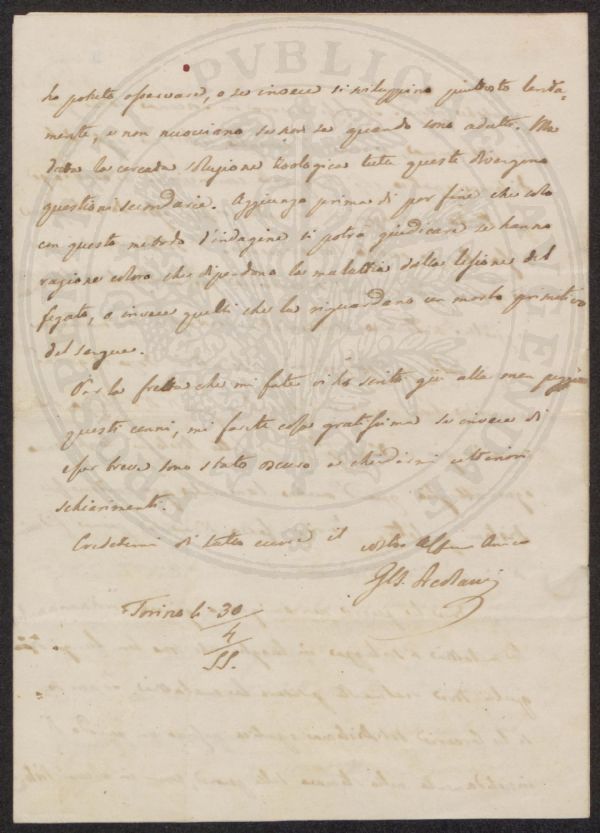 ho potuto osservare, o se invece si sviluppino piuttosto lenta-
mente, e non nuociano se non se quando sono adulti. Ma
data la cercata soluzione zoologica tutte queste divengono
questioni secondarie. Aggiungo prima di por fine che solo
con questo metodo d'indagine si potrà giudicare se hanno
ragione coloro che dipendono la malattia dalla lesione del
fegato, o invece quelli che la riguardano un morbo primitivo
del sangue.
Per la fretta che mi fate vi ho scritto giù alla men peggio
questi cenni, mi farete cosa gratissima se invece di
esser breve sono stato oscuro a chiedermi ulteriori
schiarimenti.
Credetemi di tutto cuore il vostro Affmo Amico
GB. Ercolani
Torino li 30
4
55.